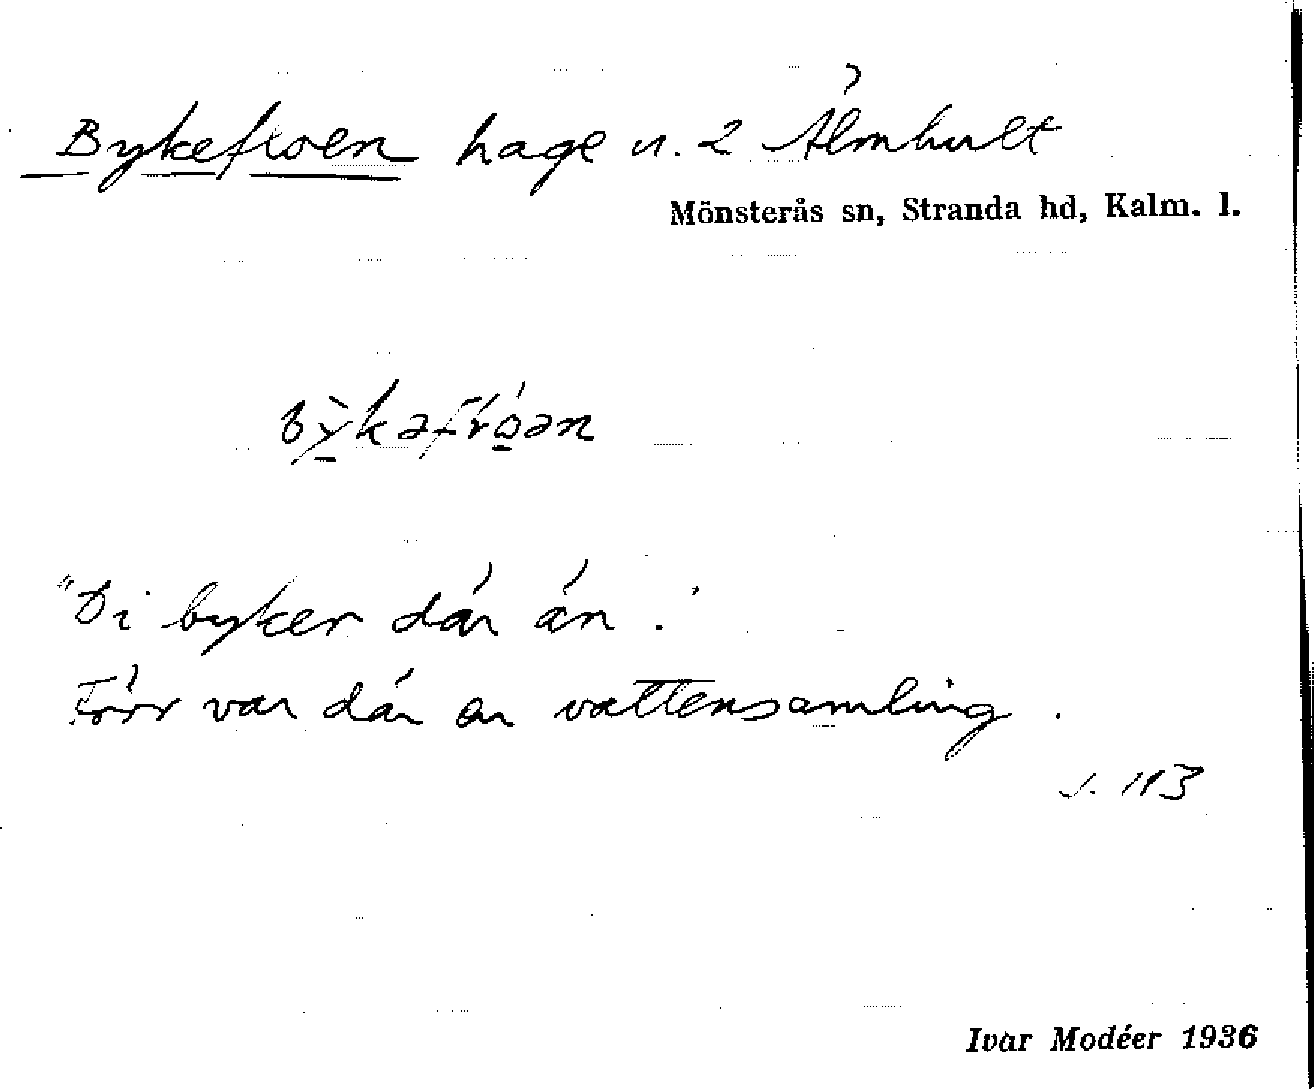 Bykefloen hage n. 2 Älmhult
Mönsterås sn, Stranda hd, Kalm. l.
"Di byker där än."
Förr var där en vattensamling.
s. 113
Ivar Modéer 1936